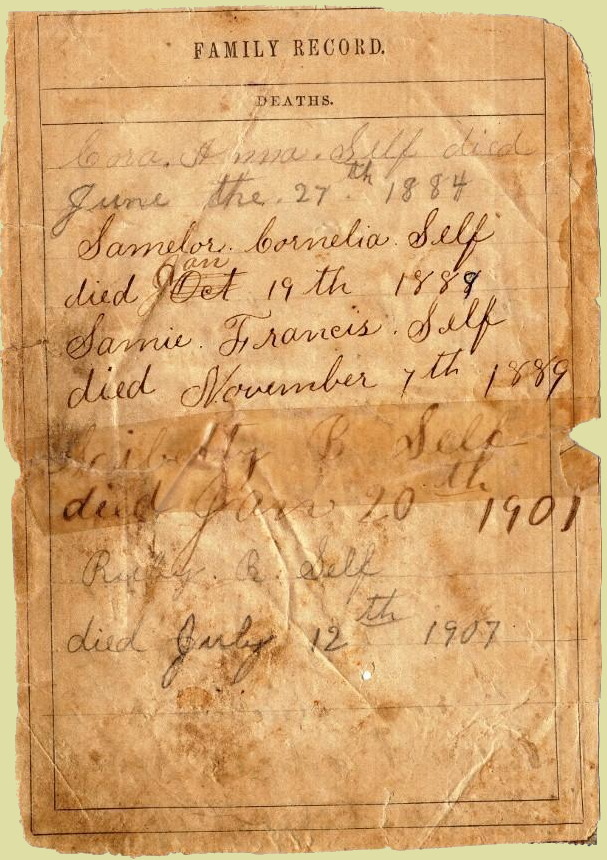 FAMILY RECORD.
DEATHS.
Cora. Anna. Self died
June the. 27th. 1884
Samelor. Cornelia. Self
Jan
died Oct 19 th 1888
Samie. Francis. Self
died November 7th 1889
B Self
died Jan 20th 1901
Ruby. B. Self
died July 12th 1907